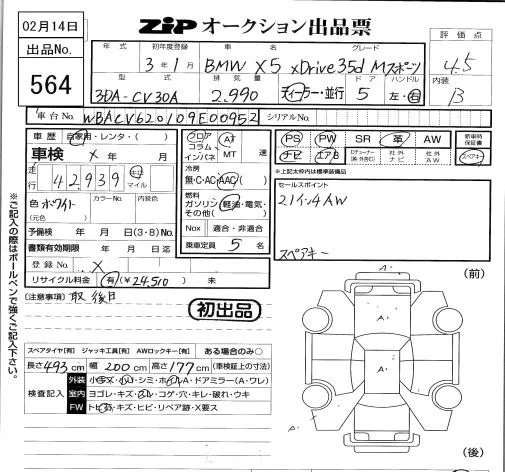 02月14日
ZIP オークション出品票
出品No.
564
年式 初年度登録 車名 グレード
3年1月 BMW X5 xDrive35d Mスポーツ
型式 排気量 ドア ハンドル
3DA-CV30A 2.990 ディーラー・並行 5 左・右
評価点
4.5
内装
B
車台No. WBACV620109E00952 シリアルNo.
車歴 自家用・レンタ・( )
車検 × 年 月
走行 42939 キロ マイル
色 ホワイト カラーNo. 内装色
(元色 )
予備検 年 月 日(3・8)No.
書類有効期限 年 月 日迄
登録No. ×
リサイクル料金 有(¥24.510) 未
フロア コラム インパネ AT MT 速
冷房
無・C・AC・AAC( )
燃料
ガソリン・軽油・電気・その他( )
Nox 適合・非適合
乗車定員 5 名
PS PW SR 革 AW
ナビ エアB Dチューナー(純・外含む) 社外ナビ 社外AW
新車時保証書
スペアキー
*上記太枠内は標準装備品
セールスポイント
21インチAW
スペアキー
(注意事項) 取 後日
初出品
スペアタイヤ[有] ジャッキ工具[有] AWロックキー[有] ある場合のみ○
長さ493cm 幅200cm 高さ177cm (車検証上の寸法)
検査記入
外装 小キズ・小凹・シミ・ホイルA・ドアミラー(A・ワレ)
室内 ヨゴレ・キズ・スレ・コゲ・穴・キレ・破れ・ウキ
FW トビ石・キズ・ヒビ・リペア跡・X要ス
(前)
A
A
A
A
A
(後)
※ご記入の際はボールペンで強くご記入下さい。